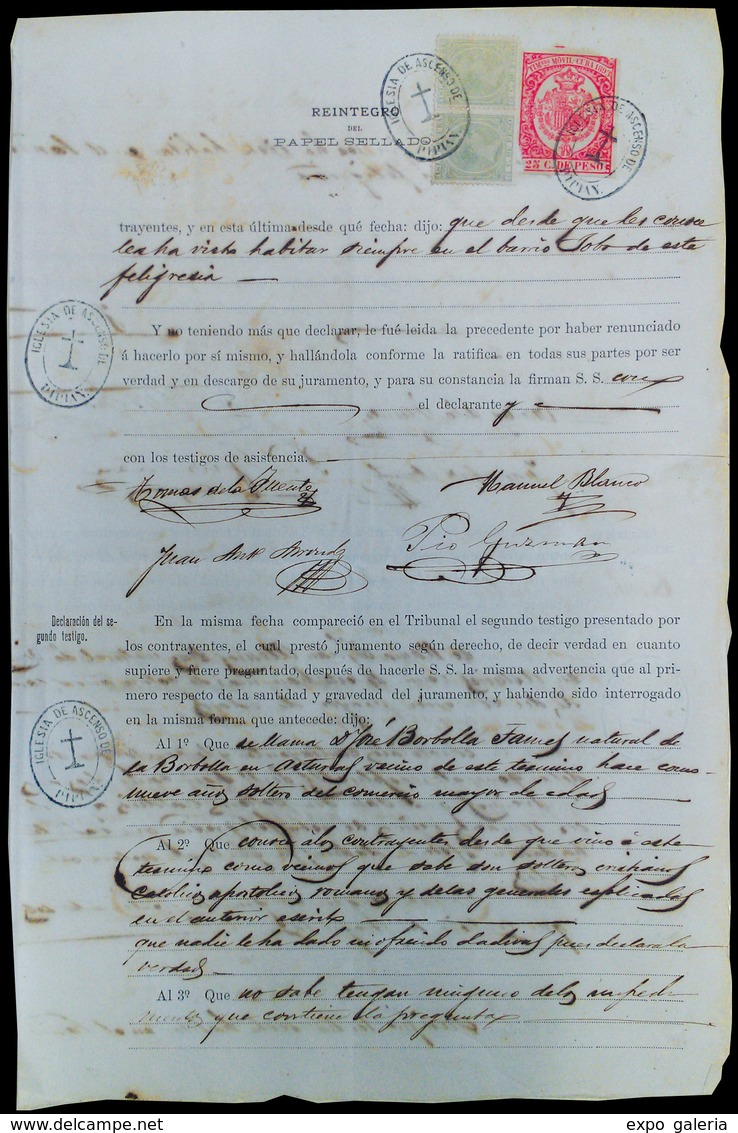 IGLESIA DE ASCENSO DE
PIPIAN.
TIMBRE MÓVIL-CUBA
25 C. DE PESO
IGLESIA DE ASCENSO DE
PIPIAN.
REINTEGRO
DEL
PAPEL SELLADO.
trayentes, y en esta última desde qué fecha: dijo: que desde que les conoce
les ha visto habitar siempre en el barrio Lobo de esta
feligresia
IGLESIA DE ASCENSO DE
PIPIAN.
Y no teniendo más que declarar, le fué leida la precedente por haber renunciado
á hacerlo por sí mismo, y hallándola conforme la ratifica en todas sus partes por ser
verdad y en descargo de su juramento, y para su constancia la firman S. S. con
el declarante y
con los testigos de asistencia.
Tomas de la Puente Manuel Blanco
Juan Pio Guzman
Declaración del se-
gundo testigo.
En la misma fecha compareció en el Tribunal el segundo testigo presentado por
los contrayentes, el cual prestó juramento según derecho, de decir verdad en cuanto
supiere y fuere preguntado, después de hacerle S. S. la misma advertencia que al pri-
mero respecto de la santidad y gravedad del juramento, y habiendo sido interrogado
en la misma forma que antecede: dijo:
IGLESIA DE ASCENSO DE
PIPIAN.
Al 1º Que se llama Dn José Borbolla natural de
la Borbolla en Asturias vecino de este termino hace como
nueve años soltero del comercio mayor de edad
Al 2º Que conoce a los contrayentes desde que vino á este
termino como vecinos que sabe son solteros cristianos
catolicos apostolicos romanos y de las generales esplicadas
en el anterior
que nadie le ha dado ni ofrecido dadivas pues declara la
verdad
Al 3º Que no sabe tengan ninguno de los impedi
mentos que contiene la pregunta
expo galeria